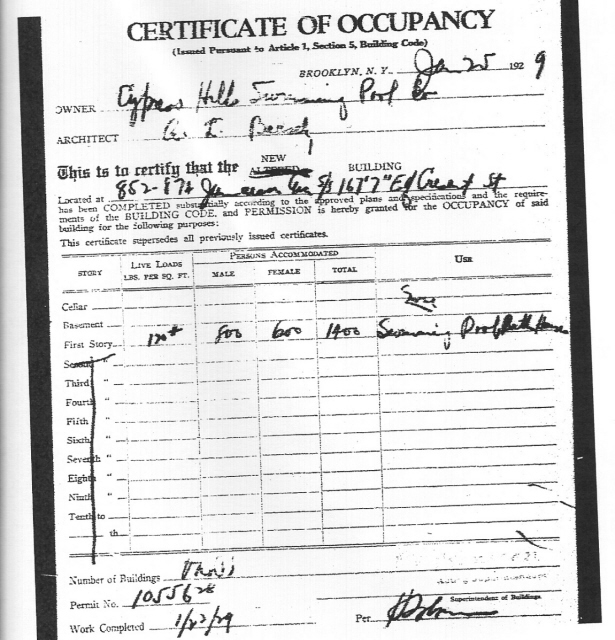 CERTIFICATE OF OCCUPANCY
(Issued Pursuant to Article 1, Section 5, Building Code)
BROOKLYN, N. Y. Jan 25 1929
OWNER Cypress Hills Swimming Pool Co
ARCHITECT
This is to certify that the NEW ALTERED BUILDING
Located at 852-874 Jamaica Ave S/s 167'7" E of Crescent St
has been COMPLETED substantially according to the approved plans and specifications and the require-
ments of the BUILDING CODE, and PERMISSION is hereby granted for the OCCUPANCY of said
building for the following purposes:
This certificate supersedes all previously issued certificates.
STORY LIVE LOADS LBS. PER SQ. FT. PERSONS ACCOMMODATED MALE FEMALE TOTAL USE
Cellar
Basement
First Story 120# 800 600 1400 Swimming Pool, Bath House
Second "
Third "
Fourth "
Fifth "
Sixth "
Seventh "
Eighth "
Ninth "
Tenth to
th
Number of Buildings
Permit No. 10556 28
Superintendent of Buildings
Work Completed 1/23/29 Per